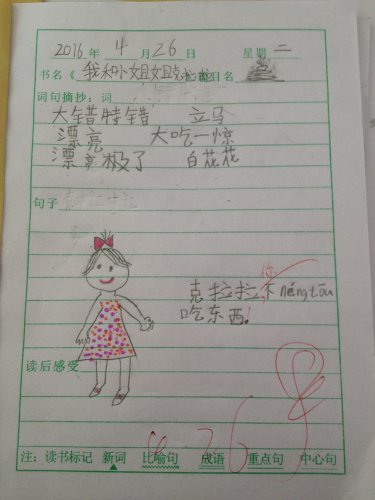 2016 年 4 月 26 日 星期 二
书名《我和小姐姐克拉拉》题目名
词句摘抄:词
大错特错 立马
漂亮 大吃一惊
漂亮极了 白花花
句子
克拉拉你不néngtōu
吃东西!
读后感受
4.26
注: 读书标记 新词 比喻句 成语 重点句 中心句